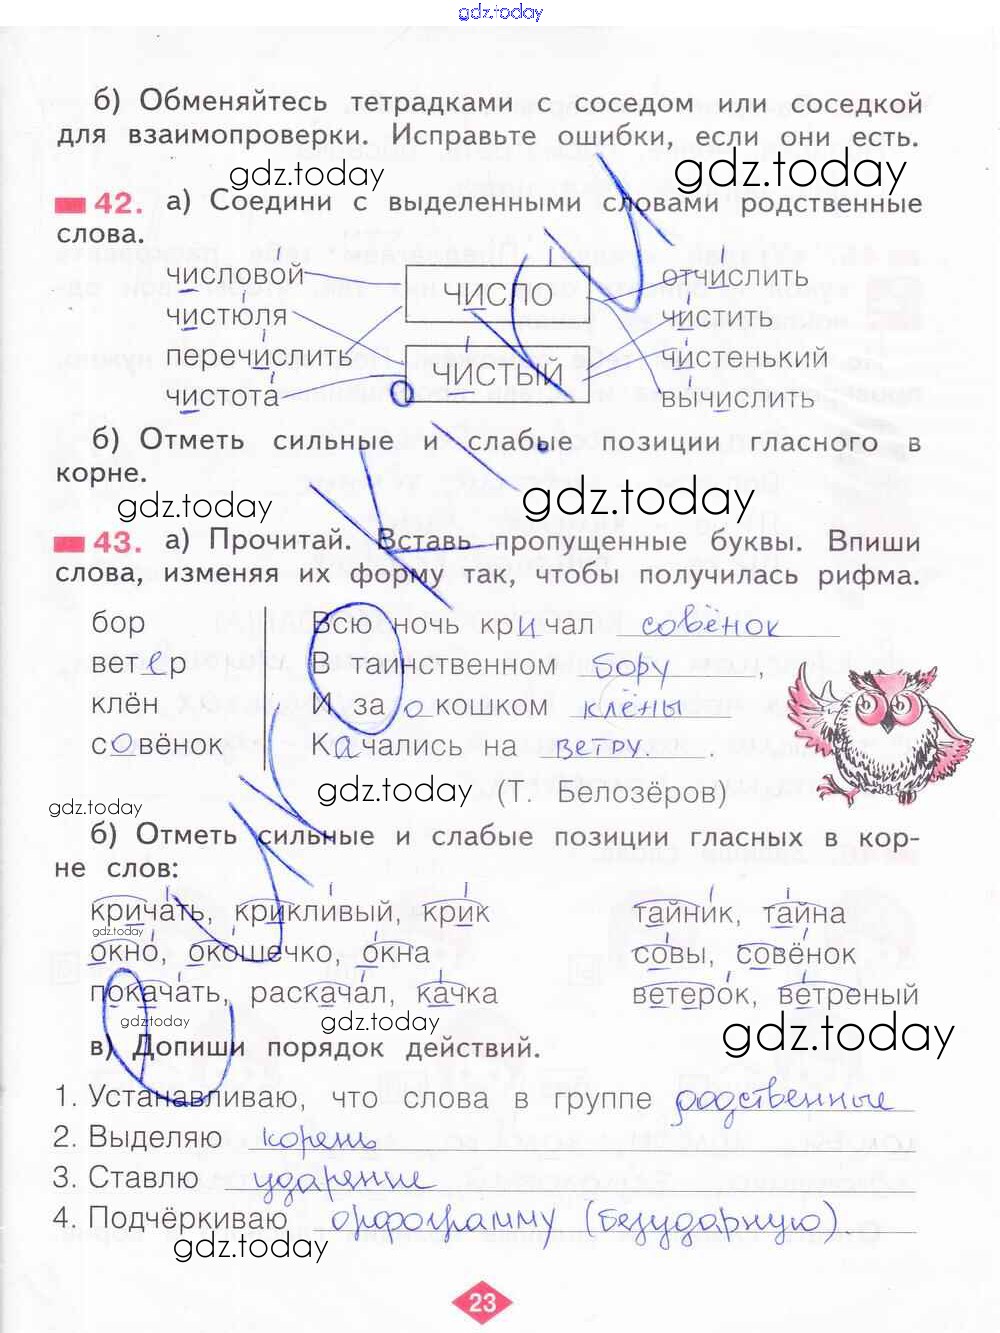 gdz.today
б) Обменяйтесь тетрадками с соседом или соседкой
для взаимопроверки. Исправьте ошибки, если они есть.
gdz.today gdz.today
42. а) Соедини с выделенными словами родственные
слова.
числовой ЧИСЛО отчислить
чистюля чистить
перечислить ЧИСТЫЙ чистенький
чистота вычислить
б) Отметь сильные и слабые позиции гласного в
корне.
gdz.today gdz.today
43. а) Прочитай. Вставь пропущенные буквы. Впиши
слова, изменяя их форму так, чтобы получилась рифма.
бор Всю ночь кричал совёнок
ветер В таинственном бору,
клён И за окошком клёны
совёнок Качались на ветру.
gdz.today gdz.today (Т. Белозёров)
б) Отметь сильные и слабые позиции гласных в кор-
не слов:
кричать, крикливый, крик тайник, тайна
gdz.today
окно, окошечко, окна совы, совёнок
покачать, раскачал, качка ветерок, ветреный
gdz.today gdz.today gdz.today
в) Допиши порядок действий.
1. Устанавливаю, что слова в группе родственные
2. Выделяю корень
3. Ставлю ударение
4. Подчёркиваю орфограмму (безударную)
gdz.today
23